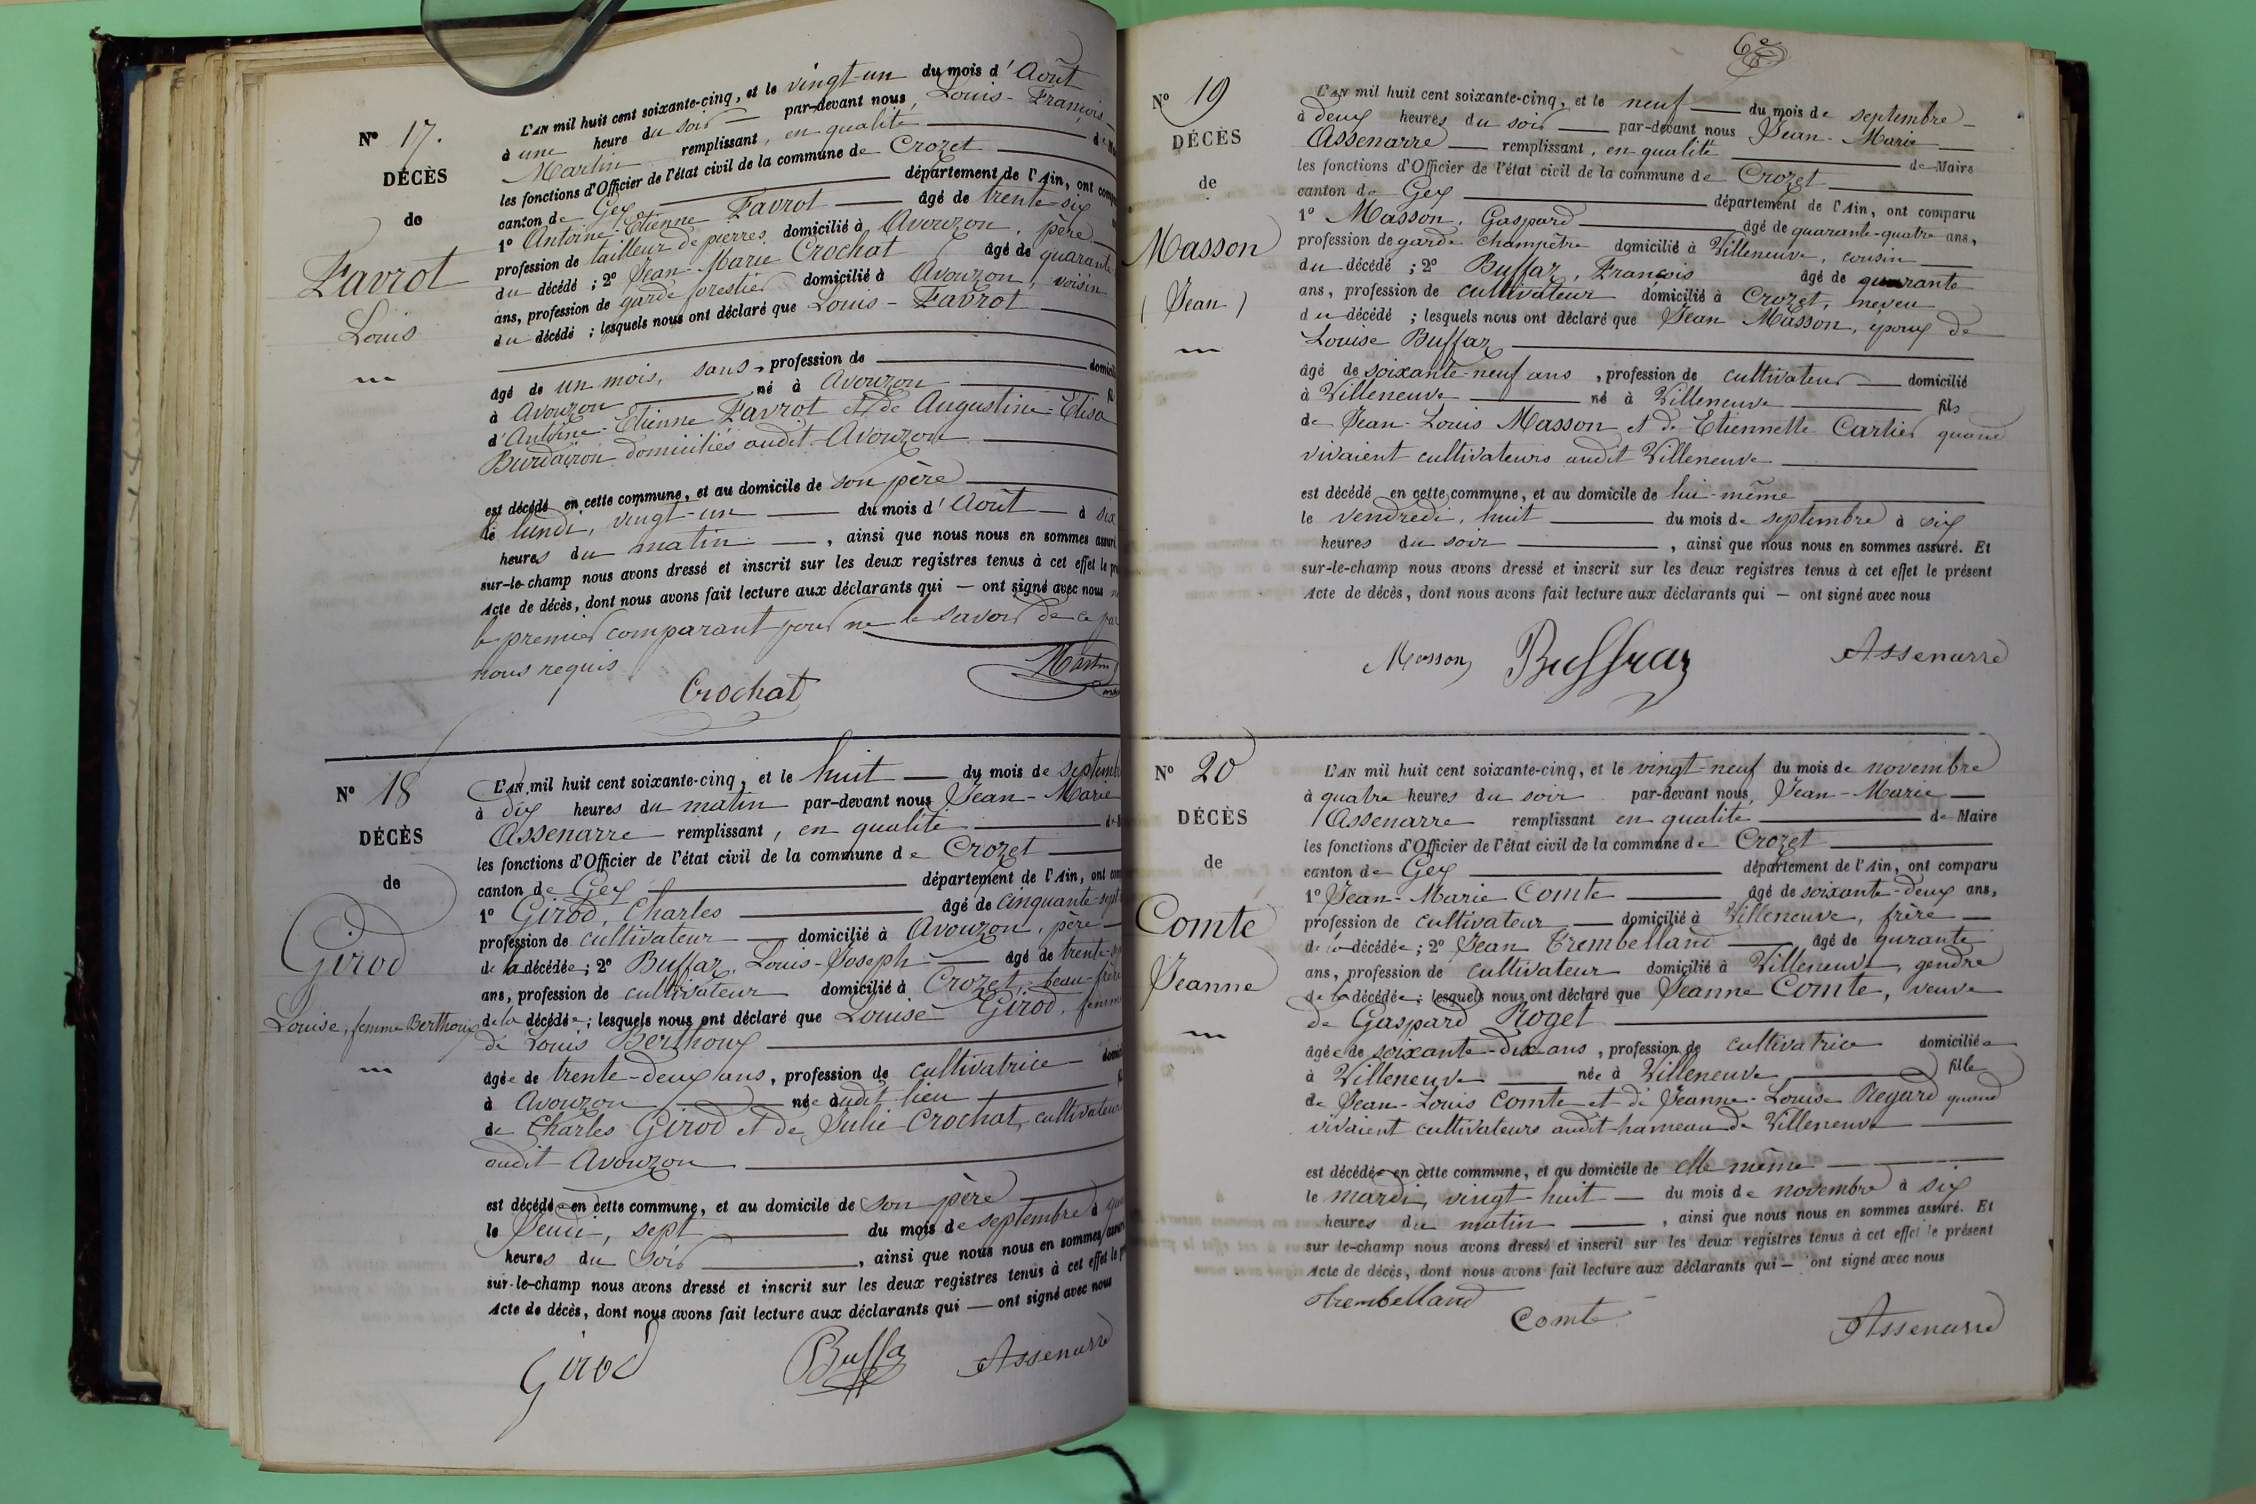 Nº 17.
DÉCÈS
de
Favrot
Louis
L'AN mil huit cent soixante-cinq, et le vingt-un du mois d'Août
à une heure du soir par-devant nous, Louis-François
Martin remplissant, en qualité de
les fonctions d'Officier de l'état civil de la commune de Crozet
canton de Gex département de l'Ain, ont
1º Antoine-Etienne Favrot âgé de trente-six
profession de tailleur de pierres domicilié à Avouzon, père
du décédé ; 2º Jean-Marie Crochat âgé de quarante
ans, profession de garde forestier domicilié à Avouzon, voisin
du décédé ; lesquels nous ont déclaré que Louis-Favrot
âgé de un mois, sans, profession de
à Avouzon né à Avouzon
d'Antoine-Etienne Favrot et de Augustine-Elisa
domiciliés audit Avouzon
est décédé en cette commune, et au domicile de son père
le lundi, vingt-un du mois d'Août à six
heures du matin, ainsi que nous nous en sommes
sur-le-champ nous avons dressé et inscrit sur les deux registres tenus à cet effet le
Acte de décès, dont nous avons fait lecture aux déclarants qui — ont signé avec nous
le premier comparant pour ne le savoir de ce
nous requis
Crochat
Martin
Nº 18
DÉCÈS
de
Girod
Louise, femme Berthoux
L'AN mil huit cent soixante-cinq, et le huit du mois de
à dix heures du matin par-devant nous Jean-Marie
Assenarre remplissant, en qualité
les fonctions d'Officier de l'état civil de la commune de Crozet
canton de Gex département de l'Ain, ont
1º Girod, Charles âgé de cinquante-sept
profession de cultivateur domicilié à Avouzon, père
de la décédée ; 2º Buffaz, Louis-Joseph âgé de
ans, profession de cultivateur domicilié à Crozet, beau-frère
de la décédée ; lesquels nous ont déclaré que Louise Girod, femme
de Louis Berthoux
âgée de trente-deux ans, profession de cultivatrice
à Avouzon née audit lieu
de Charles Girod et de Julie Crochat, cultivateurs
audit Avouzon
est décédée en cette commune, et au domicile de son père
le Jeudi, sept du mois de septembre à
heures du soir, ainsi que nous nous en sommes
sur-le-champ nous avons dressé et inscrit sur les deux registres tenus à cet effet le
Acte de décès, dont nous avons fait lecture aux déclarants qui — ont signé avec nous
Girod Buffaz Assenarre
6e
Nº 19
DÉCÈS
de
Masson
(Jean)
L'AN mil huit cent soixante-cinq, et le neuf du mois de septembre
à deux heures du soir par-devant nous Jean-Marie
Assenarre remplissant, en qualité de Maire
les fonctions d'Officier de l'état civil de la commune de Crozet
canton de Gex département de l'Ain, ont comparu
1º Masson, Gaspard âgé de quarante-quatre ans,
profession de garde champêtre domicilié à Villeneuve, cousin
du décédé ; 2º Buffaz, François âgé de quarante
ans, profession de cultivateur domicilié à Crozet, neveu
du décédé ; lesquels nous ont déclaré que Jean Masson, époux de
Louise Buffaz
âgé de soixante-neuf ans, profession de cultivateur domicilié
à Villeneuve né à Villeneuve fils
de Jean-Louis Masson et de Etiennette Cartier quand
vivaient cultivateurs audit Villeneuve
est décédé en cette commune, et au domicile de lui-même
le vendredi, huit du mois de septembre à six
heures du soir, ainsi que nous nous en sommes assuré. Et
sur-le-champ nous avons dressé et inscrit sur les deux registres tenus à cet effet le présent
Acte de décès, dont nous avons fait lecture aux déclarants qui — ont signé avec nous
Masson Buffaz Assenarre
Nº 20
DÉCÈS
de
Comte
Jeanne
L'AN mil huit cent soixante-cinq, et le vingt-neuf du mois de novembre
à quatre heures du soir par-devant nous, Jean-Marie
Assenarre remplissant en qualité de Maire
les fonctions d'Officier de l'état civil de la commune de Crozet
canton de Gex département de l'Ain, ont comparu
1º Jean-Marie Comte âgé de soixante-deux ans,
profession de cultivateur domicilié à Villeneuve, frère
de la décédée ; 2º Jean Trembelland âgé de qurante
ans, profession de cultivateur domicilié à Villeneuve, gendre
de la décédée ; lesquels nous ont déclaré que Jeanne Comte, veuve
de Gaspard Roget
âgée de soixante-dix ans, profession de cultivatrice domiciliée
à Villeneuve née à Villeneuve fille
de Jean-Louis Comte et de Jeanne-Louise Regard quand
vivaient cultivateurs audit hameau de Villeneuve
est décédée en cette commune, et au domicile de elle même
le mardi, vingt-huit du mois de novembre à six
heures du matin, ainsi que nous nous en sommes assuré. Et
sur-le-champ nous avons dressé et inscrit sur les deux registres tenus à cet effet le présent
Acte de décès, dont nous avons fait lecture aux déclarants qui — ont signé avec nous
Trembelland Comte Assenarre